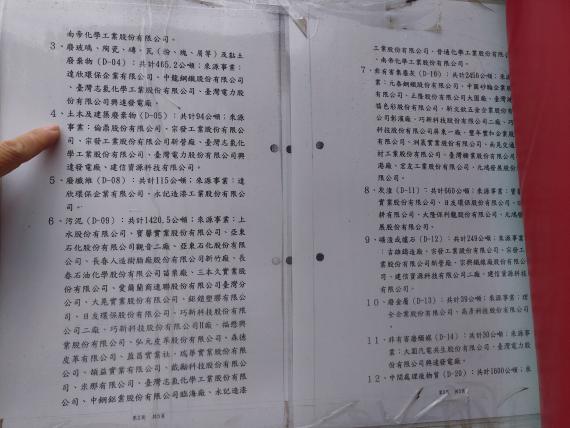 南帝化學工業股份有限公司。
3、廢玻璃、陶瓷、磚、瓦(份、塊、屑等)及黏土
廢棄物(D-04):共計465.2公噸;來源事業:
達欣環保企業有限公司、中龍鋼鐵股份有限公司
、臺灣志氯化學工業股份有限公司、臺灣電力股
份有限公司興達發電廠。
4、土木及建築廢棄物(D-05):共計94公噸;來源
事業:倫鼎股份有限公司、宗發工業股份有限公
司、宗發工業股份有限公司新營廠、臺灣志氯化
學工業股份有限公司、臺灣電力股份有限公司興
達發電廠、建信資源科技有限公司。
5、廢纖維(D-08):共計115公噸;來源事業:達
欣環保企業有限公司、永記造漆工業股份有限公司。
6、污泥(D-09):共計1420.5公噸;來源事業:上
水股份有限公司、寶馨實業股份有限公司、亞東
石化股份有限公司觀音二廠、亞東石化股份有限
公司、長春人造樹脂廠股份有限公司新竹廠、長
春石油化學股份有限公司苗栗廠、三本久實業股
份有限公司、愛爾蘭商速聯股份有限公司臺灣分
公司、大晁實業股份有限公司、鉅鎧塑膠有限公
司、日友環保股份有限公司、巧新科技股份有限
公司二廠、巧新科技股份有限公司II廠、福懋興
業股份有限公司、弘元皮革股份有限公司、森德
皮革有限公司、盈昌實業社、瑞華實業股份有限
公司、頡益實業有限公司、戴勒科技股份有限公
司、來聯有限公司、臺灣志氯化學工業股份有限
公司、中鋼鋁業股份有限公司臨海廠、永記造漆
第2頁 共5頁
工業股份有限公司、普通化學工業股份有限公司
、南帝化學工業股份有限公司。
7、非有害集塵灰(D-16):共計2450公噸;來源
業:元泰鋼鐵股份有限公司、中國砂輪企業股
有限公司、正隆股份有限公司大園廠、臺灣
限公司彰濱廠、巧新科技股份有限公司二廠、巧
科技股份有限公司屏東一廠、豐年豐和企業
有限公司
8、灰渣(D-11):共計660公噸;來源事業:寶
實業股份有限公司、日友環保股份有限公司
耕有限公司、大隆保利龍股份有限公司、允鴻發
展股份
9、礦渣或爐石(D-12):共計249公噸;來源事業
:吉維鑄造廠、宗發工業股份有限公司、宗發
業股份有限公司新營廠、宗興鐵線廠股份有限公
司、建信資源科技有限公司二廠、建信資源科技
有限公司。
10、廢金屬(D-13):共計39公噸;來源事業:理
全企業股份有限公司、高彥科技股份有限公司
。
11、非有害廢觸媒(D-14):共計30公噸;來源事
業:大園汽電共生股份有限公司、臺灣電力股
份有限公司興達發電廠。
12、中間處理後物質(D-20):共計1600公噸;來
第3頁 共5頁